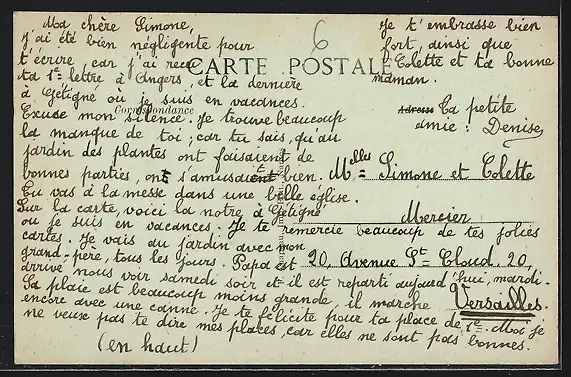 Ma chère Simone,
j'ai été bien négligente pour
t'écrire, car j'ai reçu
ta 1e lettre à Angers, et la dernière
à Gétigné où je suis en vacances.
Excuse mon silence. Je trouve beaucoup
la manque de toi ; car tu sais, qu'au
jardin des plantes ont faisaient de
bonnes parties, ont s'amusait bien.
Tu vas à la messe dans une belle église.
Sur la carte, voici la notre à Gétigné
ou je suis en vacances. Je te remercie beaucoup de tes jolies
cartes. Je vais au jardin avec mon
grand-père, tous les jours. Papa est
arrivé nous voir samedi soir et il est reparti aujourd'hui, mardi.
Sa plaie est beaucoup moins grande, il marche
encore avec une canne. Je te félicite pour ta place de 1e. Moi je
ne veux pas te dire mes places, car elles ne sont pas bonnes.
(en haut)
Je t'embrasse bien
fort, ainsi que
Colette et ta bonne
maman.
Ta petite
amie : Denise
6
CARTE POSTALE
Correspondance
Adresse
Melles Simone et Colette
Mercier
20, Avenue St Cloud. 20,
Versailles.